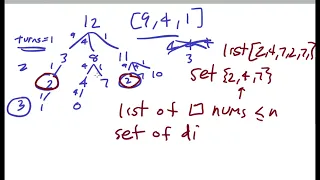 12 [9,4,1]
turns=1
9 4 1
3 8 11
list[2,4,7,2,7,]
3
set {2,4,7}
2 2 4 7 2 7 10
3 1 0
list of □ nums ≤n
set of di